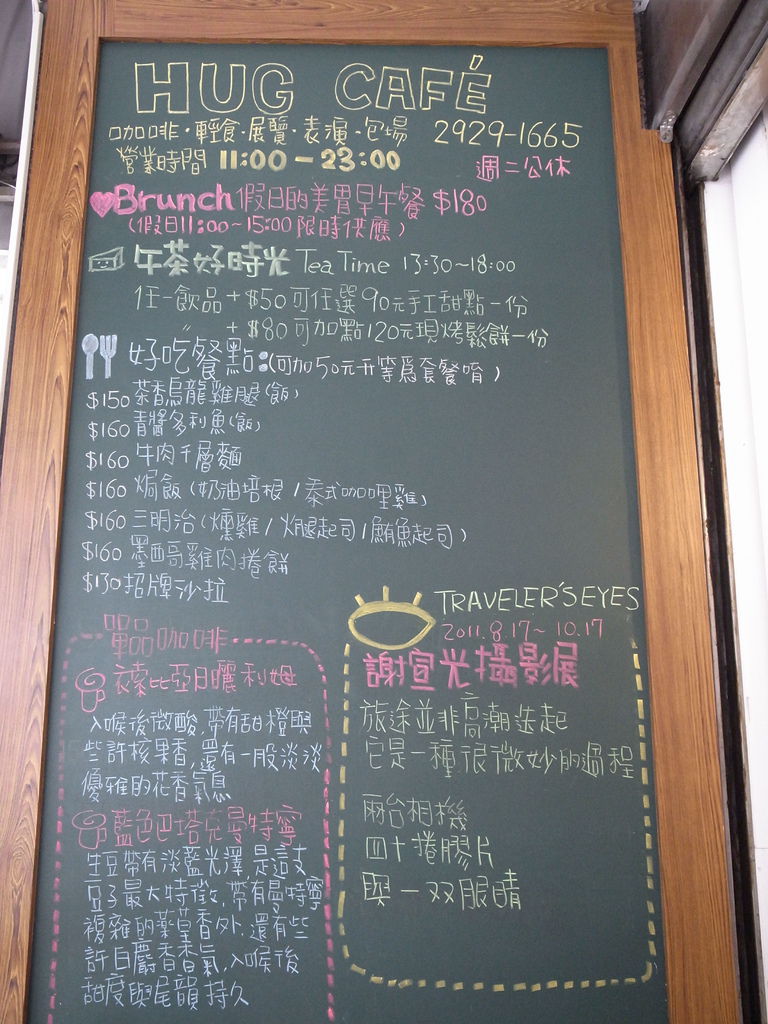 HUG CAFÉ
咖啡·輕食·展覽·表演·包場 2929-1665
營業時間 11:00-23:00 週二公休
Brunch 假日的美胃早午餐 $180
(假日11:00~15:00限時供應)
午茶好時光 Tea Time 13:30~18:00
任一飲品+$50可任選90元手工甜點一份
〃 +$80可加點120元現烤鬆餅一份
好吃餐點:(可加50元升等為套餐唷)
$150 茶香烏龍雞腿(飯)
$160 青醬多利魚(飯)
$160 牛肉千層麵
$160 焗飯(奶油培根/泰式咖哩雞)
$160 三明治(燻雞/火腿起司/鮪魚起司)
$160 墨西哥雞肉捲餅
$130 招牌沙拉
單品咖啡
衣索比亞日曬利姆
入喉後微酸,帶有甜橙與
些許核果香,還有一股淡淡
優雅的花香氣息
藍色巴塔克曼特寧
生豆帶有淡藍光澤,是這支
豆子最大特徵,帶有曼特寧
複雜的藥草香外,還有些
許白麝香香氣,入喉後
甜度與尾韻持久
TRAVELER'S EYES
2011.8.17~10.17
謝宣光攝影展
旅途並非高潮迭起
它是一種很微妙的過程
兩台相機
四十捲膠片
與一双眼睛